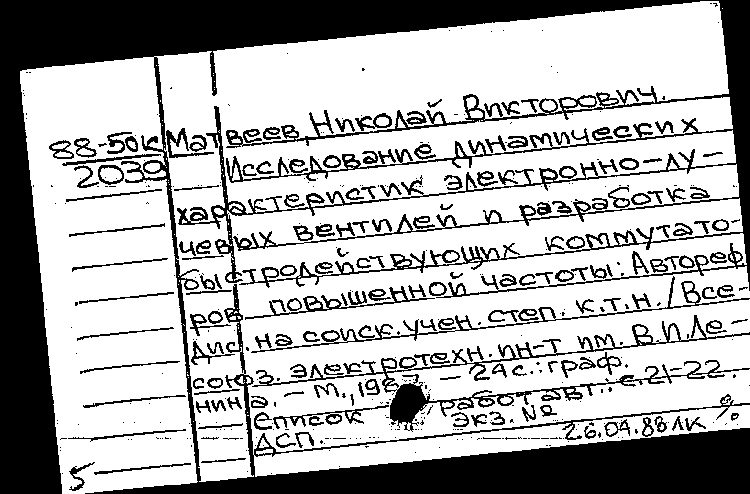 88-50к Матвеев, Николай Викторович.
2039 Исследование динамических
характеристик электронно-лу-
чевых вентилей и разработка
быстродействующих коммутато-
ров повышенной частоты: Автореф.
дис. на соиск. учен. степ. к.т.н. / Все-
союз. электротехн. ин-т им. В.И. Ле-
нина. - М., 1987. - 24 с.: граф.
Список работ авт.: с. 21-22.
ДСП. экз. №
26.04.88 лк %
5